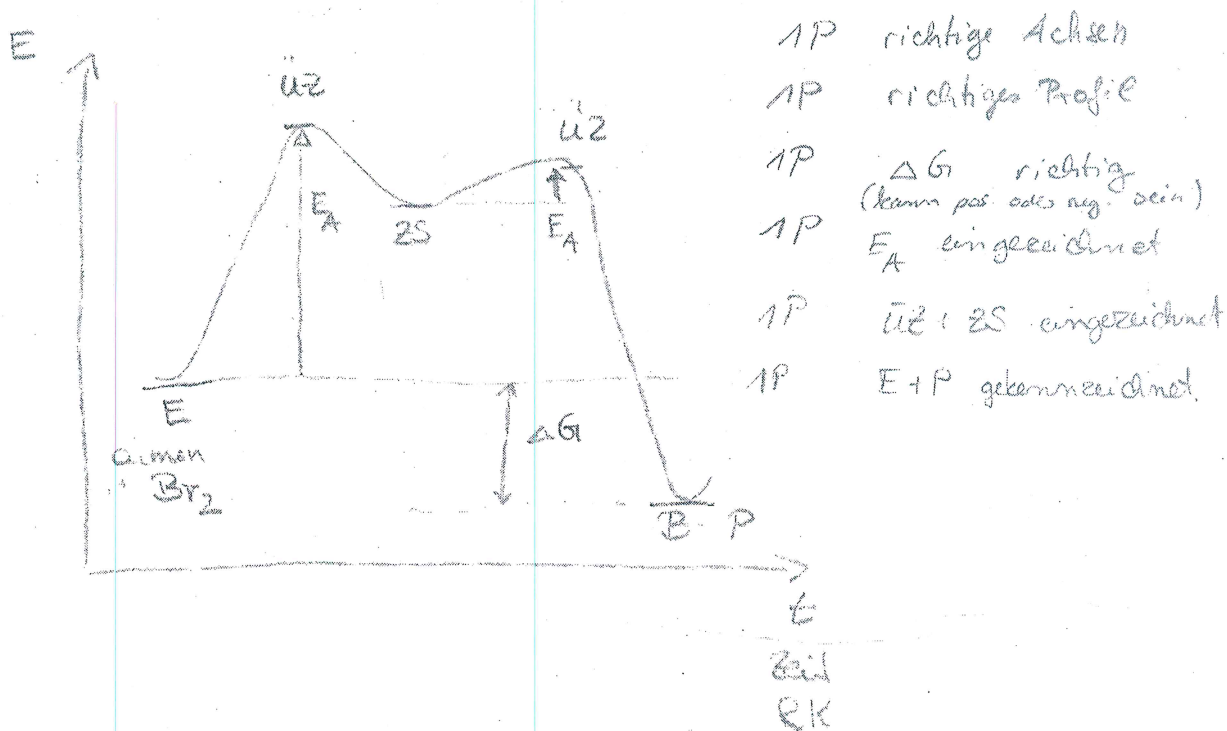 E
ÜZ
ÜZ
E_A
ZS
E_A
E
Br₂
ΔG
B P
t
Zeit
RK
1P richtige Achsen
1P richtiges Profil
1P ΔG richtig
(kann pos. oder neg. sein)
1P E_A eingezeichnet
1P ÜZ + ZS eingezeichnet
1P E+P gekennzeichnet.